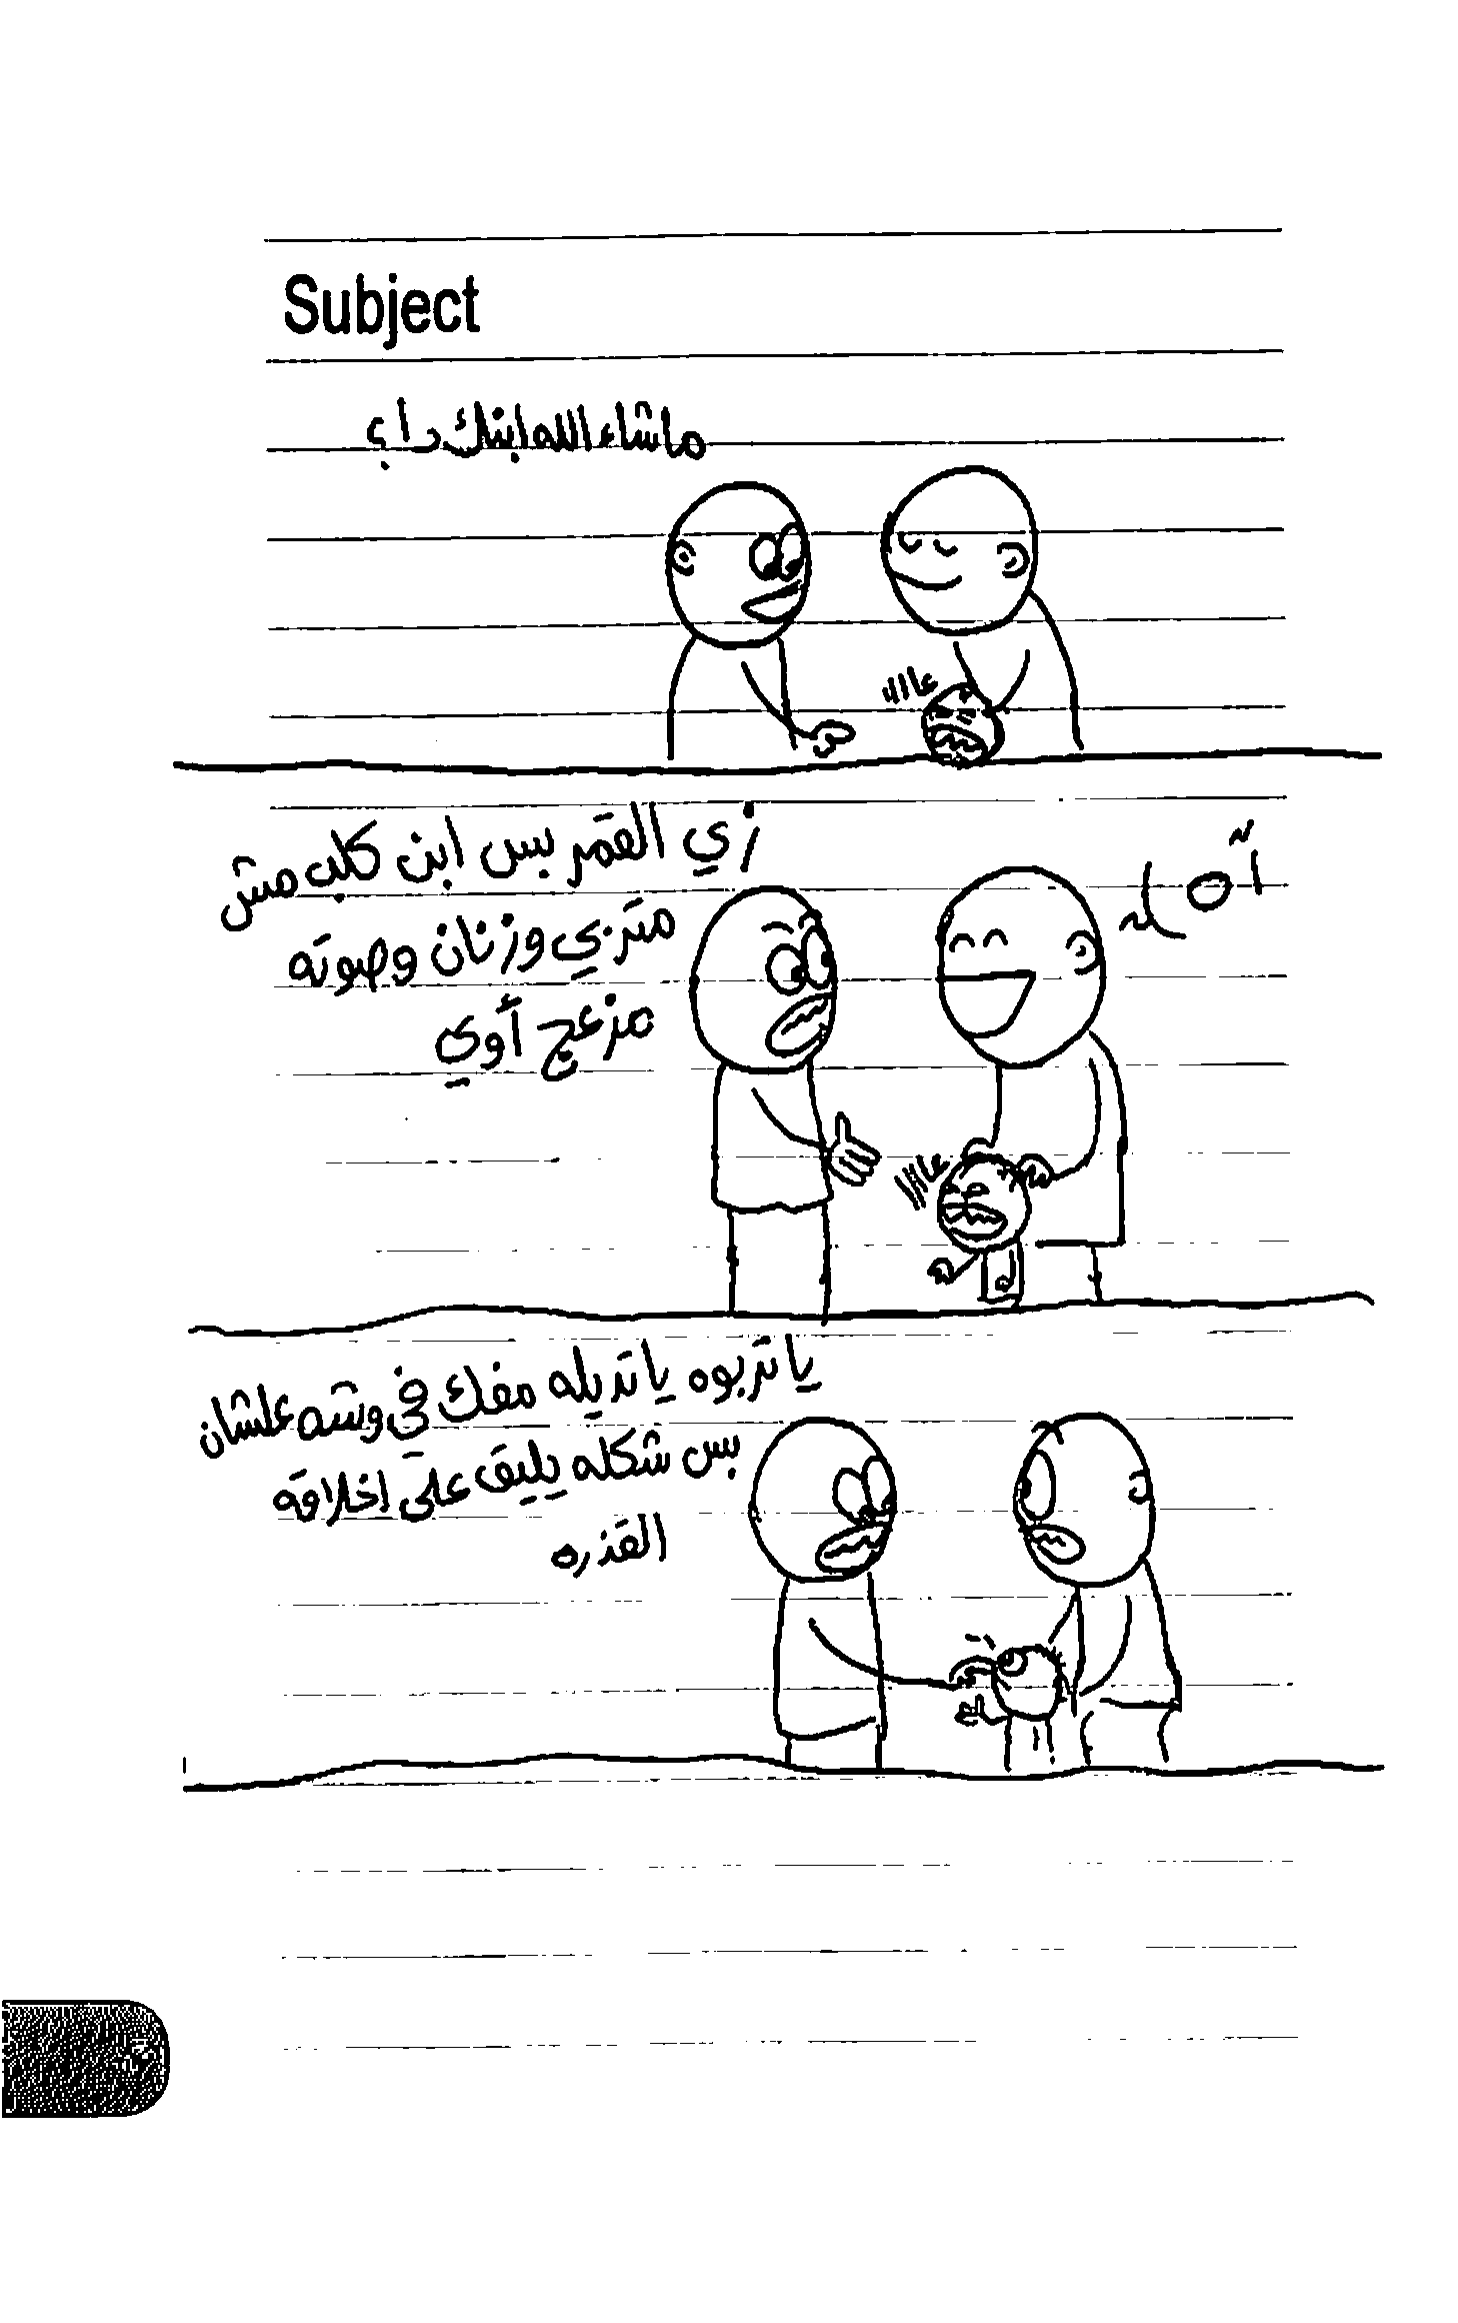 Subject
ما شاء الله ابنك دا ؟
عااااا
آه يا
زي القمر بس ابن كلب مش
متربي وزنان وصوته
مزعج أوي
عااااا
يا تربوه يا تديله مفك في وشه علشان
بس شكله يليق على اخلاقه
القذره